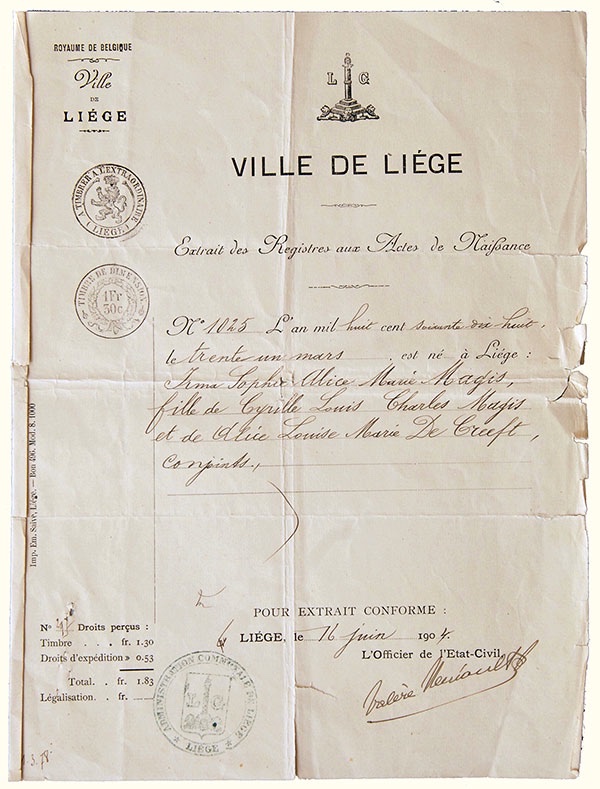 ROYAUME DE BELGIQUE
Ville
DE
LIÉGE
L G
VILLE DE LIÉGE
A TIMBRER A L'EXTRAORDINAIRE
( LIÉGE )
Extrait des Registres aux Actes de Naissance
TIMBRE DE DIMENSION
1Fr
30c.
N° 1025 L'an mil huit cent soixante dix huit,
le trente un mars est né à Liége :
Irma Sophie Alice Marie Magis,
fille de Cyrille Louis Charles Magis
et de Alice Louise Marie De Creeft,
conjoints,
Imp. Em. Saive, Liége. — Bon 496. Mod. 8. 1000
POUR EXTRAIT CONFORME :
N° Droits perçus :
Timbre . . . fr. 1.30
Droits d'expédition » 0.53
Total. . fr. 1.83
Légalisation. . fr.
LIÉGE, le 16 juin 1904.
L'Officier de l'Etat-Civil,
Valère
ADMINISTRATION COMMUNALE DE LIÉGE
L G
LIÉGE
3. 78